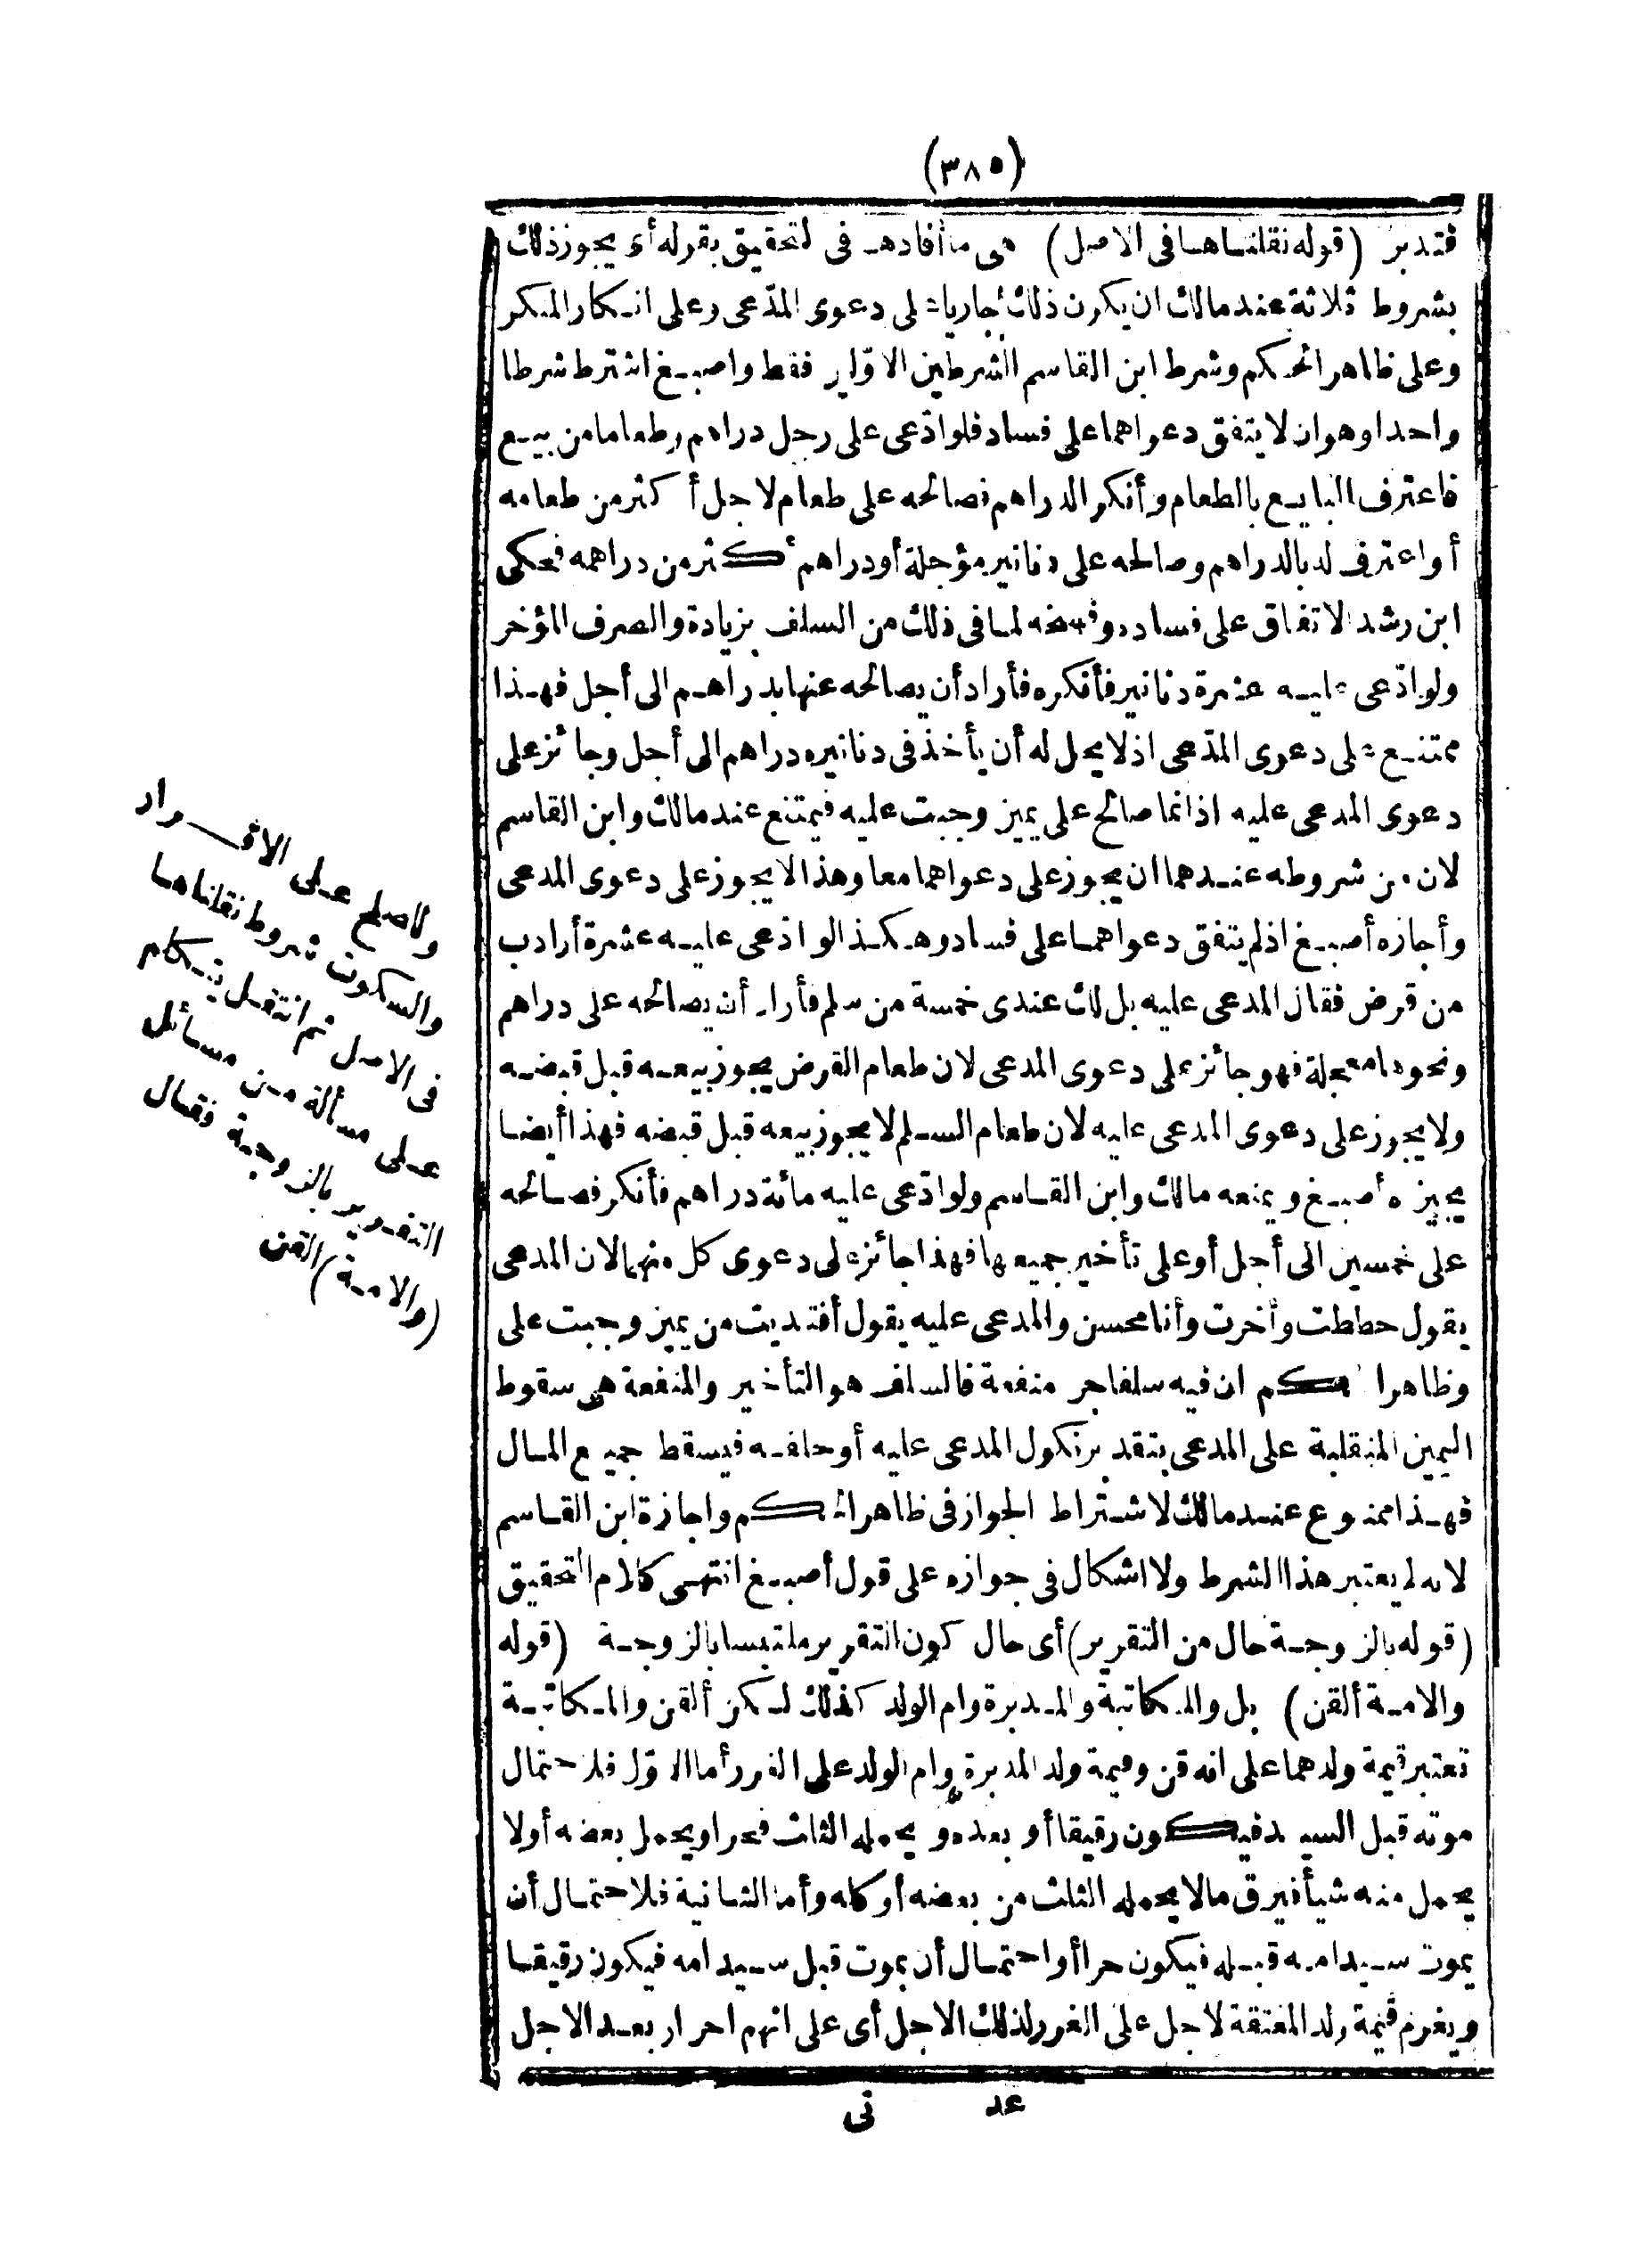 (٣٨٥)
فتدبر (قوله نقلناها فى الاصل) هى ما أفاده فى التحقيق بقوله أى يجوز ذلك
بشروط ثلاثة عند مالك ان يكون ذلك جاريا على دعوى المدّعى وعلى انكار المنكر
وعلى ظاهر الحكم وشرط ابن القاسم الشرطين الاوّلين فقط واصبغ اشترط شرطا
واحدا وهو ان لا يتفق دعواهما على فساد فلو ادّعى على رجل دراهم وطعاما من بيع
فاعترف البايع بالطعام وأنكر الدراهم فصالحه على طعام لاجل أكثر من طعامه
أو اعترف له بالدراهم وصالحه على دنانير مؤجلة أو دراهم أكثر من دراهمه فحكى
ابن رشد الاتفاق على فساده وفسخه لما فى ذلك من السلف بزيادة والصرف المؤخر
ولو ادّعى عليه عشرة دنانير فأنكره فأراد أن يصالحه عنها بدراهم الى أجل فهذا
ممتنع على دعوى المدّعى اذ لا يحل له أن يأخذ فى دنانيره دراهم الى أجل وجائز على
دعوى المدعى عليه اذ انما صالح على يمين وجبت عليه فيمتنع عند مالك وابن القاسم
لان من شروطه عندهما ان يجوز على دعواهما معا وهذا لا يجوز على دعوى المدعى
وأجازه أصبغ اذ لم يتفق دعواهما على فساد وهكذا لو ادّعى عليه عشرة أرادب
من قرض فقال المدعى عليه بل لك عندى خمسة من سلم فأراد أن يصالحه على دراهم
ونحوها معجلة فهو جائز على دعوى المدعى لان طعام القرض يجوز بيعه قبل قبضه
ولا يجوز على دعوى المدعى عليه لان طعام السلم لا يجوز بيعه قبل قبضه فهذا أيضا
يجيزه أصبغ ويمنعه مالك وابن القاسم ولو ادّعى عليه مائة دراهم فأنكر فصالحه
على خمسين الى أجل أو على تأخير جميعها فهذا جائز على دعوى كل منهما لان المدعى
يقول حططت وأخرت وأنا محسن والمدعى عليه يقول أفتديت من يمين وجبت على
وظاهر الحكم ان فيه سلفا جر منفعة فالسلف هو التأخير والمنفعة هى سقوط
اليمين المنقلبة على المدعى بتقدير نكول المدعى عليه أو حلفه فيسقط جميع المال
فهذا ممنوع عند مالك لاشتراط الجواز فى ظاهر الحكم واجازة ابن القاسم
لانه لم يعتبر هذا الشرط ولا اشكال فى جوازه على قول أصبغ انتهى كلام التحقيق
(قوله بالزوجة حال من التقرير) أى حال كون التقرير ملتبسا بالزوجة (قوله
والامة ألقن) بل والمكاتبة والمدبرة وام الولد كذلك لكن ألقن والمكاتبة
تعتبر قيمة ولدهما على انه قن وقيمة ولد المدبرة وام الولد على الغرر أما الاوّل فلاحتمال
موته قبل السيد فيكون رقيقا أو بعده ويحمله الثلث فحر او يحمل بعضه أو لا
يحمل منه شيأ فيرق مالا يحمله الثلث من بعضه أو كله وأما الثانية فلاحتمال أن
يموت سيد امه قبله فيكون حرا أو احتمال أن يموت قبل سيد امه فيكون رقيقا
ويغرم قيمة ولد المعتقة لاجل على الغرر لذلك الاجل أى على انهم احرار بعد الاجل
وللصلح على الاقرار
والسكوت شروط نقلناها
فى الاصل ثم انتقل يتكلم
على مسألة من مسائل
التغرير بالزوجة فقال
(والامة) القن
عد نى